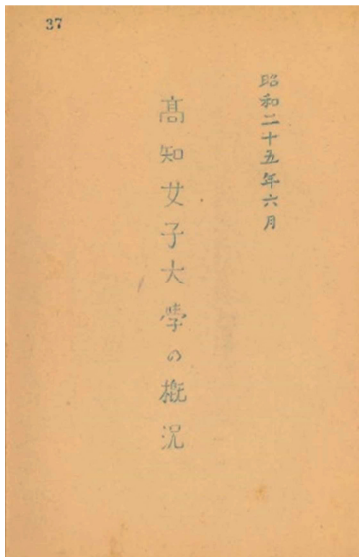 37
昭和二十五年六月
髙知女子大學の概況